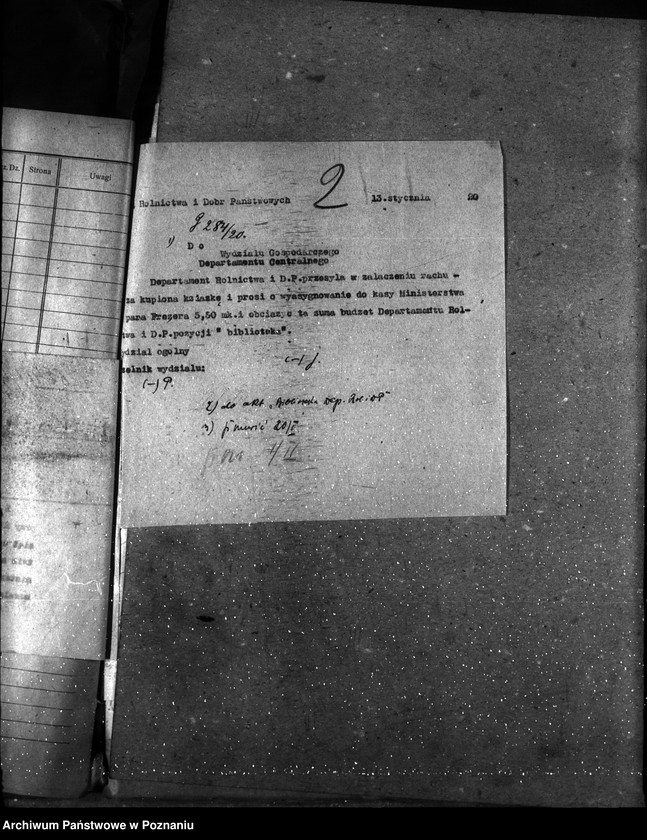 z. Dz. Strona Uwagi
2
Rolnictwa i Dobr Państwowych 13.stycznia 20
J 284/20.
1) D o
Wydziału Gospodarczego
Departamentu Centralnego
Departament Rolnictwa i D.P.przesyła w załaczeniu rachu -
za kupiona ksiazkę i prosi o wyasygnowanie do kasy Ministerstwa
pana Prezera 5,50 mk.i obciazyc ta suma budzet Departamentu Rol-
twa i D.P.pozycji " biblioteka".
dział ogolny
zelnik wydziału:
(-) J.
(-) P.
2) do akt „Biblioteka Dep. Rol. i DP"
3) 20/I
1/II
Archiwum Państwowe w Poznaniu